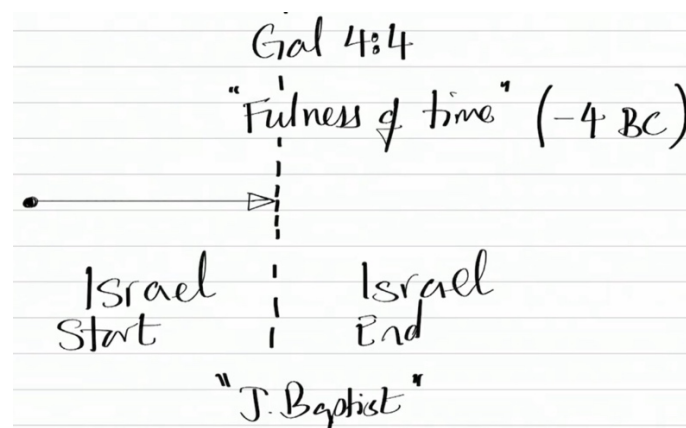 Gal 4:4
"Fulness of time" (-4 BC)
Israel Israel
Start End
"J. Baptist"